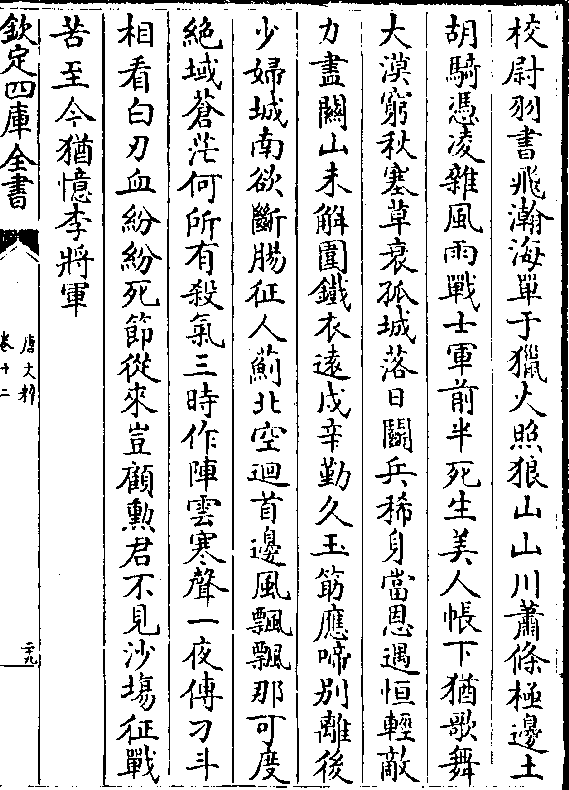 校尉羽書飛瀚海單于獵火照狼山山川蕭條極邊土
胡騎憑凌雜風雨戰士軍前半死生美人帳下猶歌舞
大漠窮秋塞草衰孤城落日鬬兵稀身當恩遇恒輕敵
力盡關山未解圍鐵衣遠戍辛勤久玉筯應啼别離後
少婦城南欲斷腸征人薊北空迴首邊風飄飄那可度
絶域蒼茫何所有殺氣三時作陣雲寒聲一夜傳刁斗
相看白刃血紛紛死節從來豈顧勲君不見沙塲征戰
苦至今猶憶李將軍
欽定四庫全書
唐文粹
卷十二
二十九